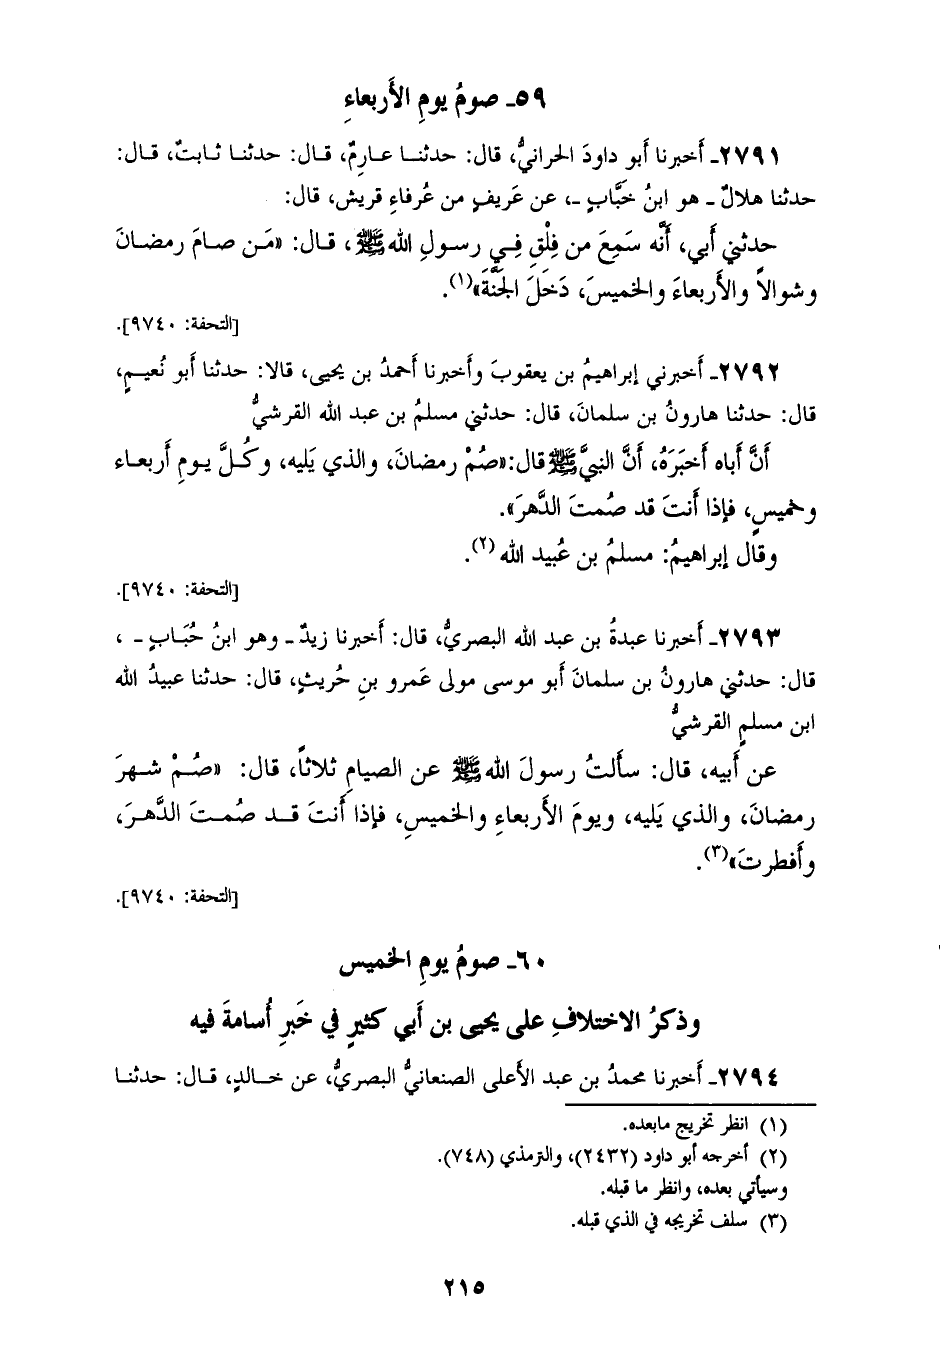 ٥٩ـ صومُ يومِ الأَربعاءِ
٢٧٩١ـ أَخبرنا أَبو داودَ الحرانيُّ، قال: حدثنـا عـارِمٌ، قـال: حدثنـا ثـابتٌ، قـال:
حدثنا هلالٌ ـ هو ابنُ خَبَّابٍ ـ، عن عَريفٍ من عُرفاءِ قريش، قال:
حدثني أَبي، أَنَّه سَمِعَ من فِلْقِ فِـي رسـولِ اللهﷺ، قـال: «مَـن صـامَ رمضـانَ
وشوالاً والأَربعاءَ والخميسَ، دَخَلَ الجَنَّةَ»(١).
[التحفة: ٩٧٤٠].
٢٧٩٢ـ أَخبرني إبراهيمُ بن يعقوبَ وأَخبرنا أَحمدُ بن يحيى، قالا: حدثنا أَبو نُعيـمٍ،
قال: حدثنا هارونُ بن سلمانَ، قال: حدثني مسلمُ بن عبد الله القرشيُّ
أَنَّ أَباه أَخبَرَهُ، أَنَّ النبيَّﷺ قال:«صُمْ رمضانَ، والذي يَليه، وكُـلَّ يـومِ أَربعـاء
وخميسٍ، فإذا أَنتَ قد صُمتَ الدَّهرَ».
وقال إبراهيمُ: مسلمُ بن عُبيد الله (٢).
[التحفة: ٩٧٤٠].
٢٧٩٣ـ أَخبرنا عبدةُ بن عبد الله البصريُّ، قال: أَخبرنا زيدٌ ـ وهو ابنُ حُبَـابٍ ـ ،
قال: حدثني هارونُ بن سلمانَ أَبو موسى مولى عَمرو بنِ حُريثٍ، قال: حدثنا عبيدُ الله
ابن مسلمٍ القرشيُّ
عن أَبيه، قال: سأَلتُ رسولَ اللهﷺ عن الصيامِ ثلاثاً، قال: «صُـمْ شـهرَ
رمضانَ، والذي يَليه، ويومَ الأَربعاءِ والخميسِ، فإذا أَنتَ قـد صُمـتَ الدَّهـرَ،
وأَفطرتَ»(٣).
[التحفة: ٩٧٤٠].
٦٠ـ صومُ يومِ الخميس
وذكرُ الاختلافِ على يحيى بن أَبي كثيرٍ في خَبرِ أُسامةَ فيه
٢٧٩٤ـ أَخبرنا محمدُ بن عبد الأَعلى الصنعانيُّ البصريُّ، عن خـالدٍ، قـال: حدثنـا
(١) انظر تخريج مابعده.
(٢) أخرجه أبو داود (٢٤٣٢)، والترمذي (٧٤٨).
وسيأتي بعده، وانظر ما قبله.
(٣) سلف تخريجه في الذي قبله.
٢١٥